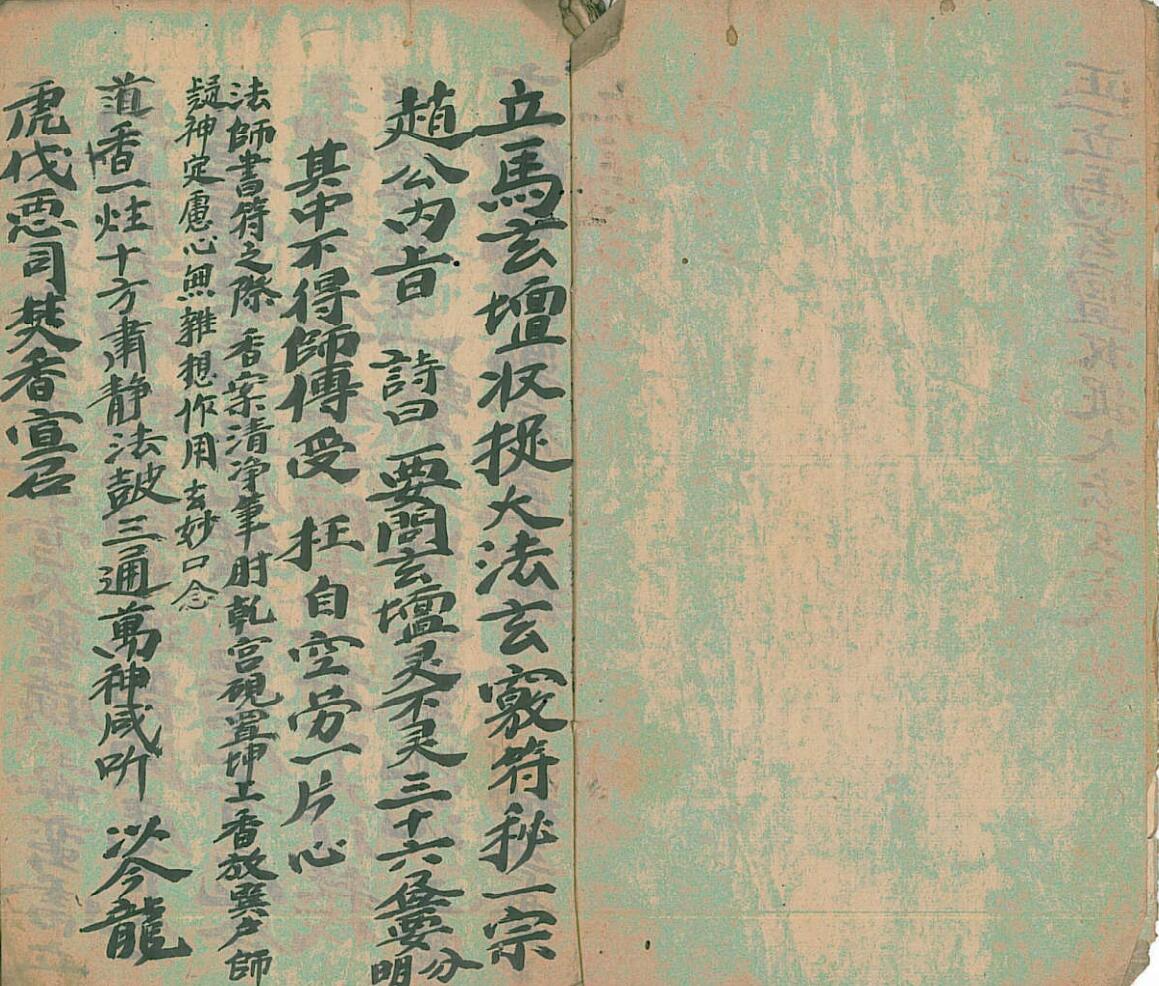 立馬玄壇収捉大法玄竅符秘一宗
趙公內旨 詩曰 要問玄壇灵不灵三十六条要分明
其中不得師傳受 枉自空劳一片心
法師書符之際 香案清净筆肘乾宫硯置坤工香放巽户師
凝神定慮心無雜想作用玄妙口念
道香一炷十方肃静法鼓三通萬神咸听
龍
虎 司焚香宣召